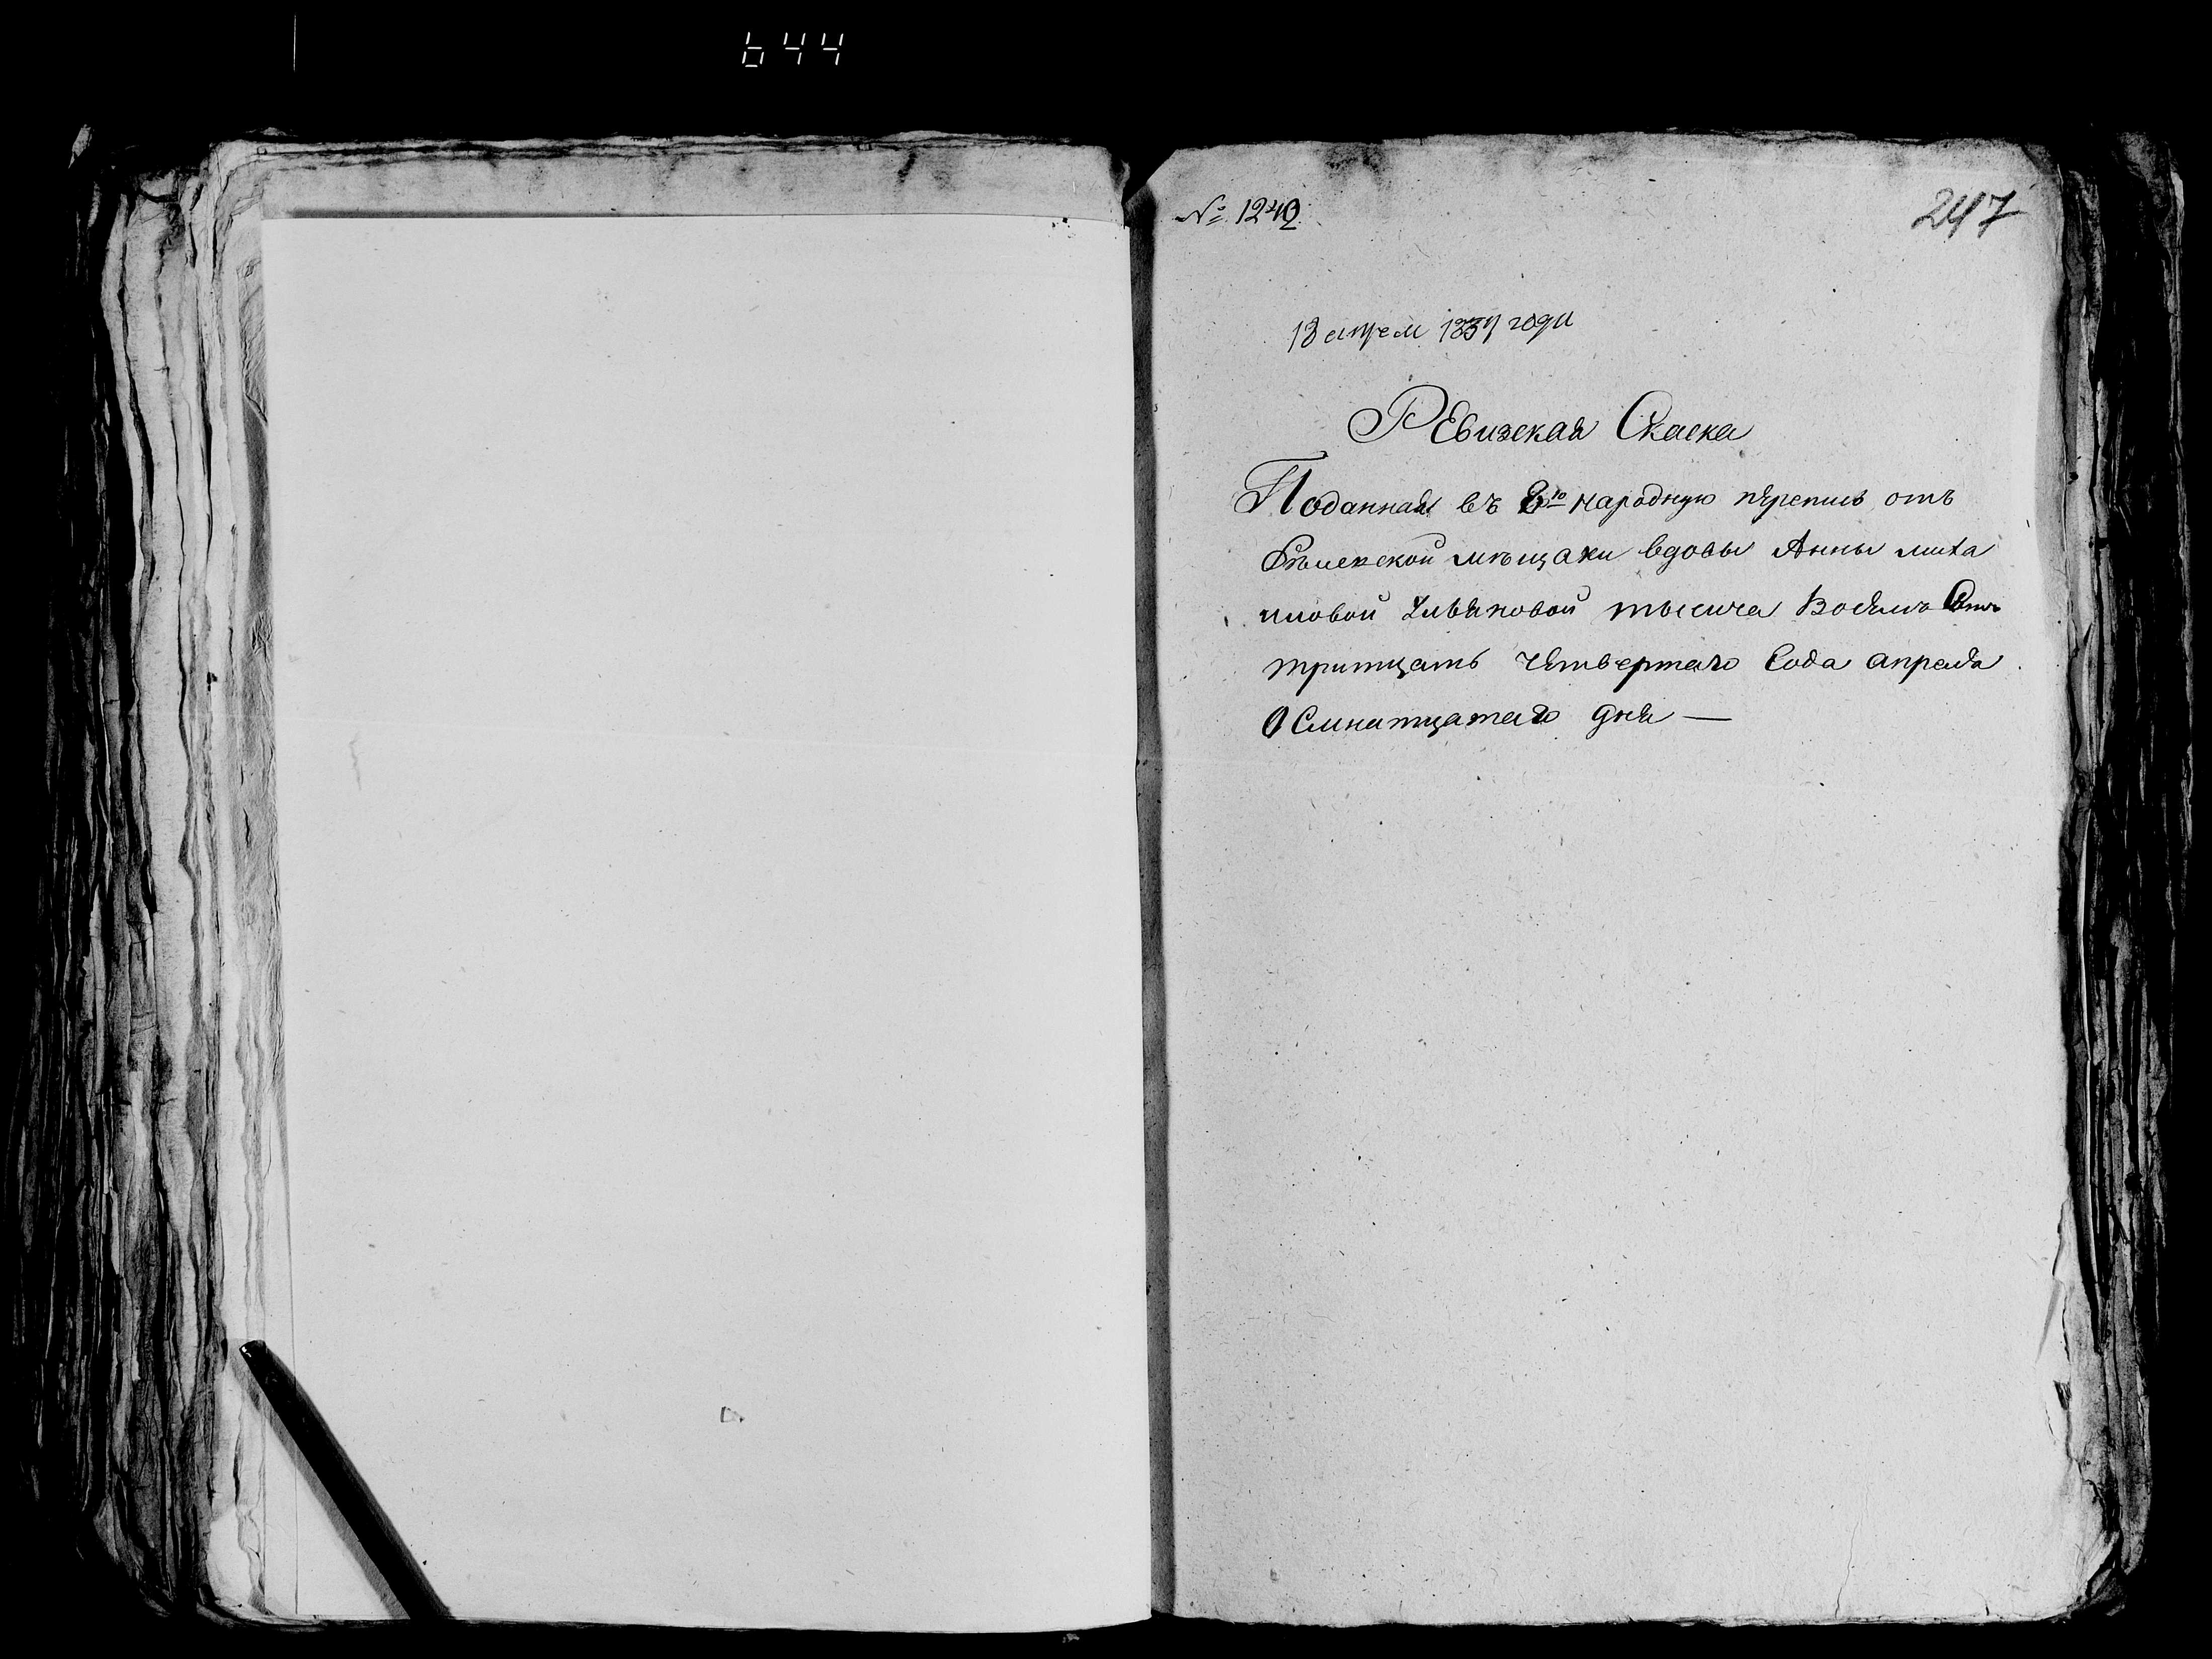 644
№ 1240
247
18 апреля 1834 года
РЕвизская Скаска
Поданная въ 8ю народную перепись отъ
мещанки вдовы Анны миха
иловой тысича Восемь Сотъ
тритцать четвертаго Года апреля
Осмнатцатаго дня —